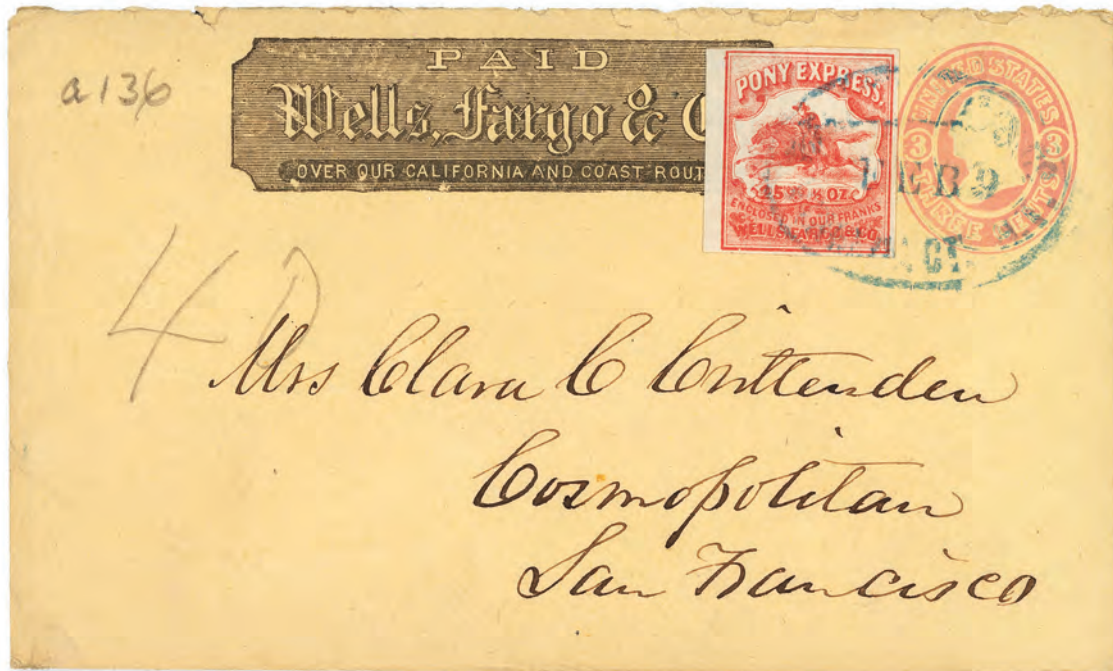 a 136
PAID
Wells, Fargo & C
OVER OUR CALIFORNIA AND COAST ROUT
PONY EXPRESS.
25¢ ½ OZ
ENCLOSED IN OUR FRANKS
WELLS FARGO & CO
UNITED STATES
3 3
THREE CENTS
FEB 9
4
Mrs Clara C Crittenden
Cosmopolitan
San Francisco